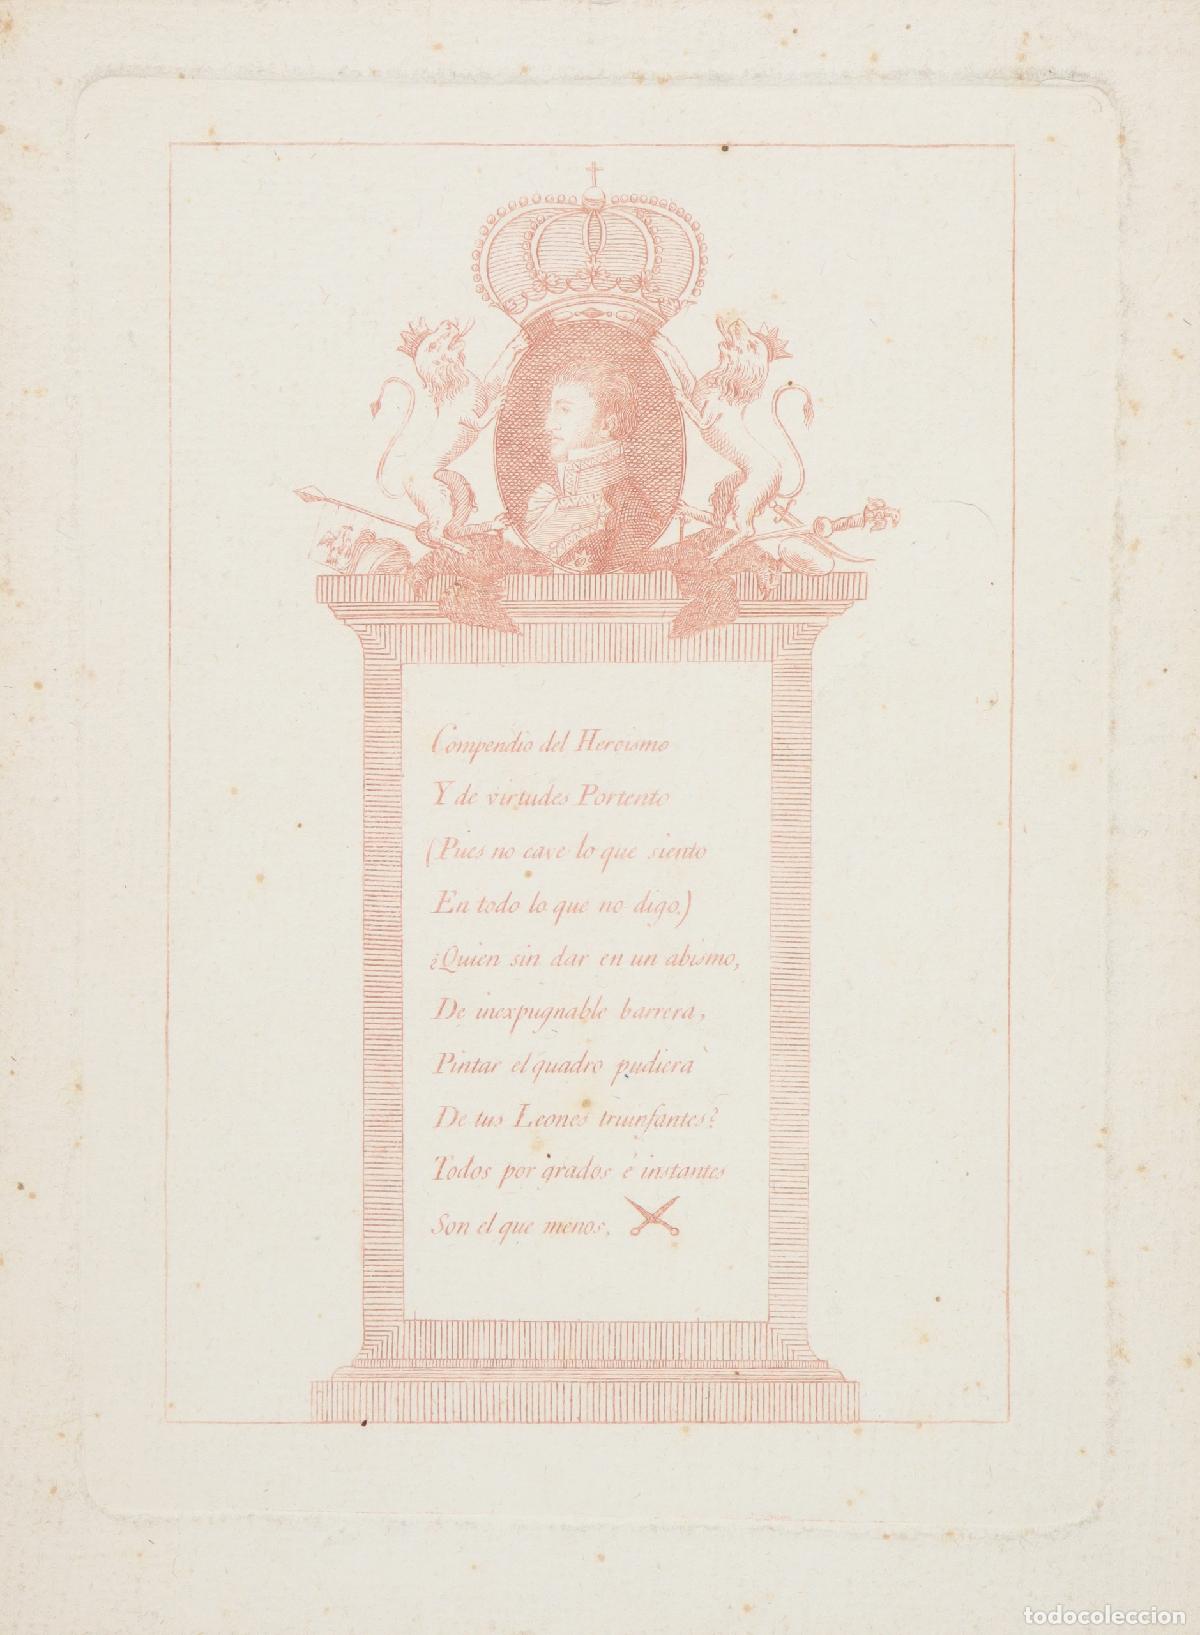 Compendio del Heroismo
Y de virtudes Portento
(Pues no cave lo que siento
En todo lo que no digo.)
¿Quien sin dar en un abismo,
De inexpugnable barrera,
Pintar el quadro pudiera
De tus Leones triunfantes?
Todos por grados é instantes
Son el que menos,
todocoleccion